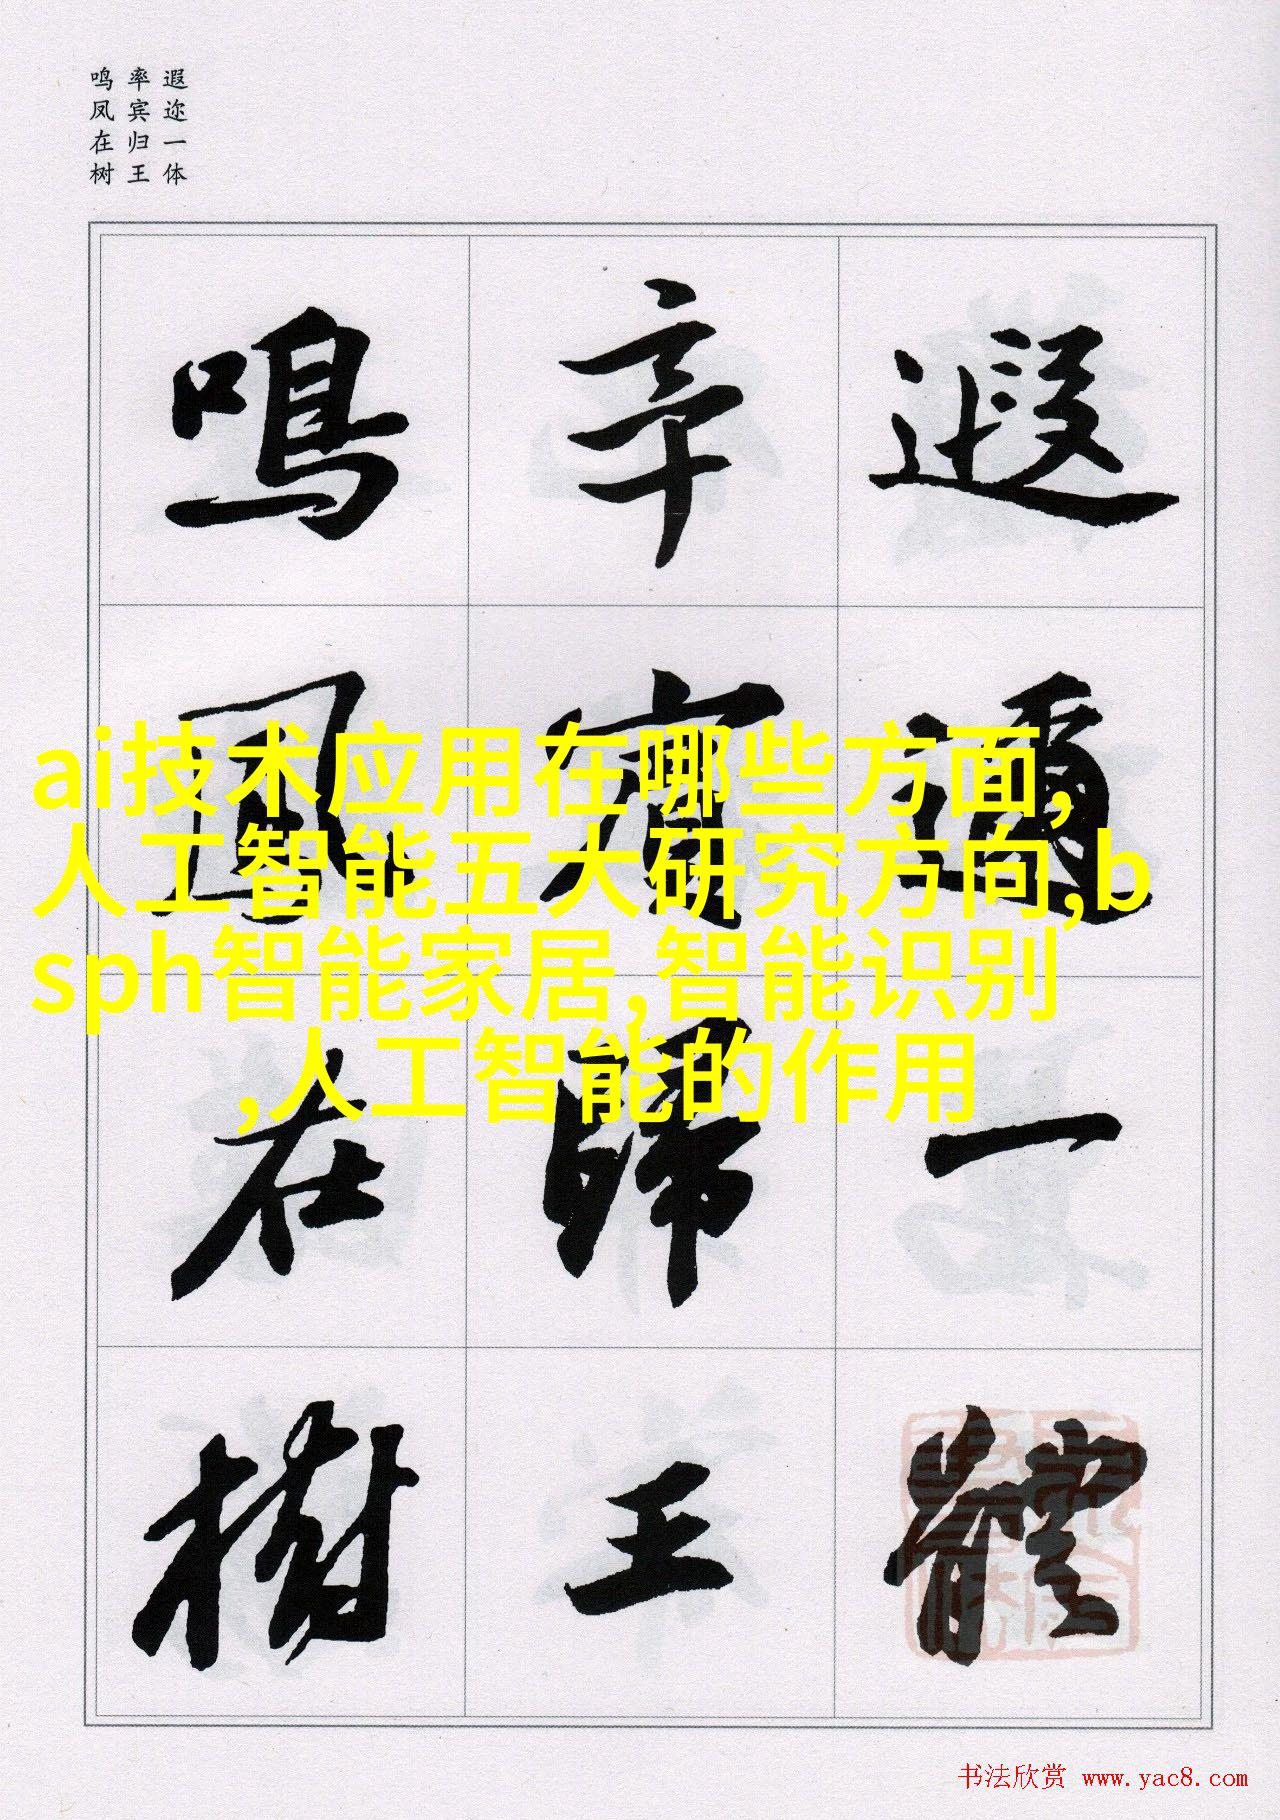 遐迩一体
率宾归王
鸣凤在树
遐邇一體
率賓歸王
鳴鳳在樹
ai技术应用在哪些方面,
人工智能五大研究方向,b
sph智能家居,智能识别
,人工智能的作用
书法欣赏 www.yac8.com